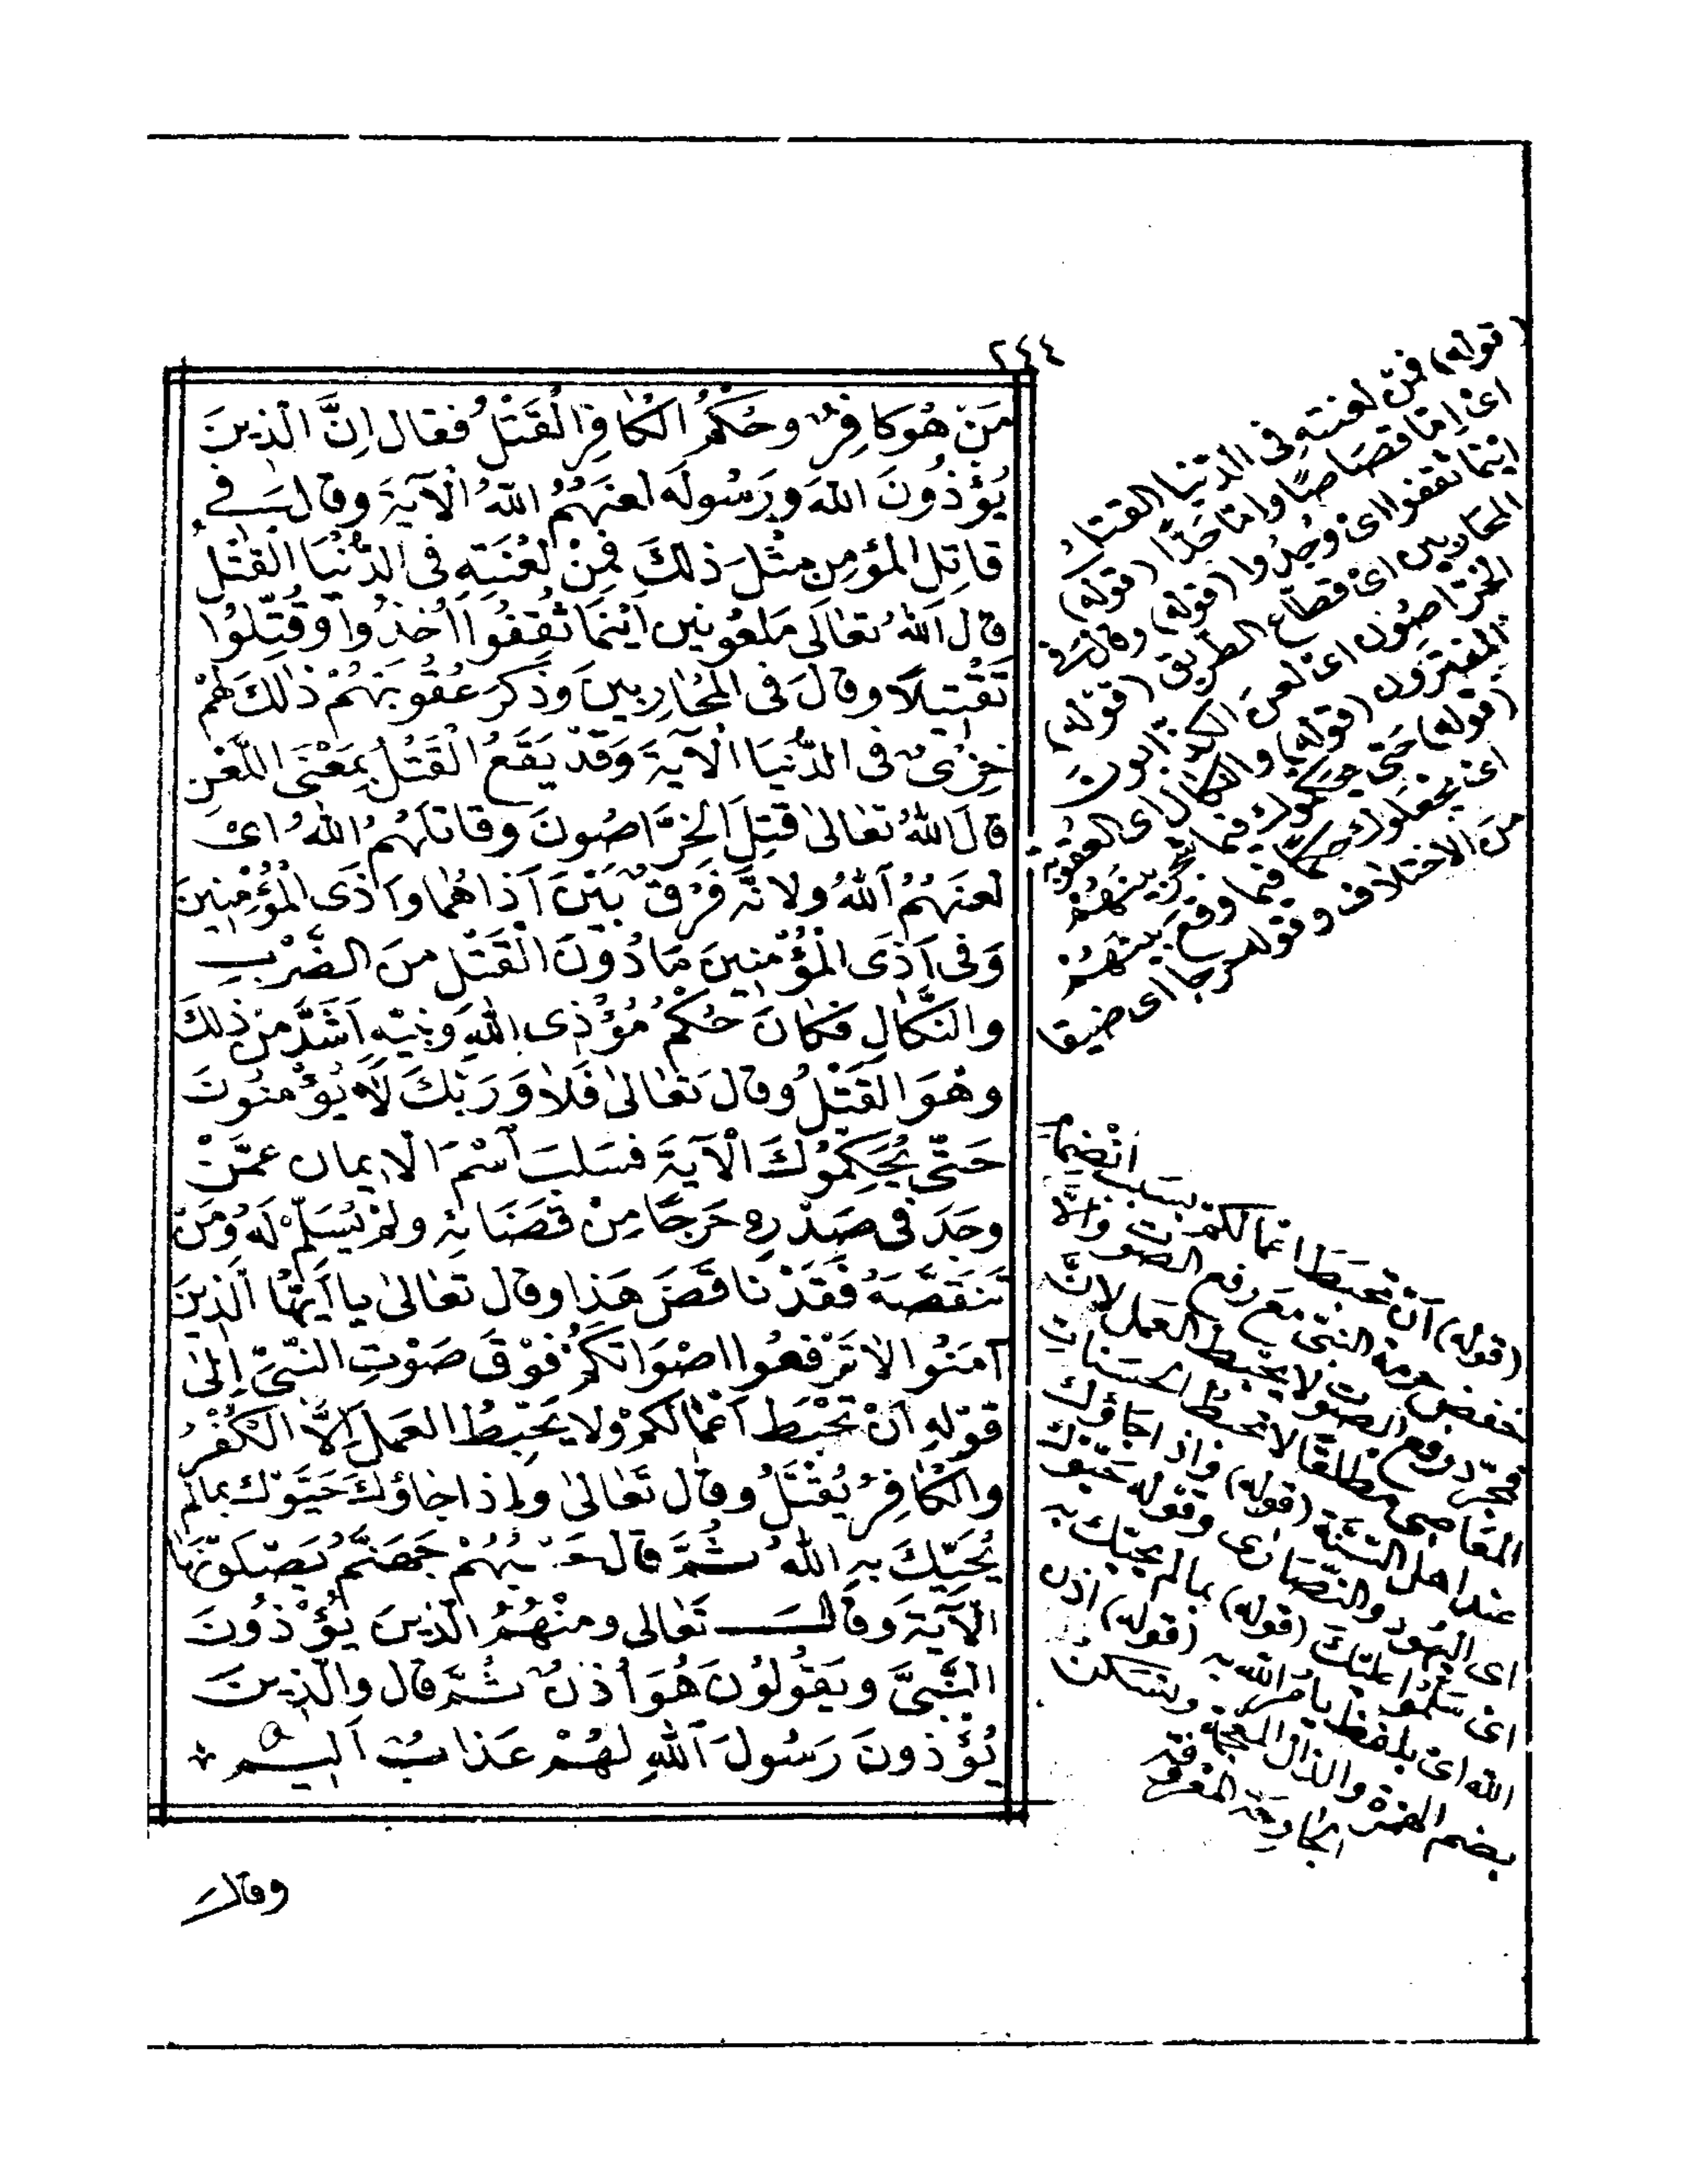 ٢٤٤
مَنْ هُوَ كَافِرٌ وَحُكْمُ الْكَافِرِ الْقَتْلُ فَقَال اِنَّ الَّذِينَ
يُؤْذُونَ اللهَ وَرَسُولَه لَعَنَهُمُ اللهُ الْآيَةَ وقالَ فِي
قَاتِلِ المُؤْمِنِ مِثْلَ ذلِكَ فَمِنْ لَعْنَتِهِ فِى الدُّنْيَا الْقَتْلُ
قالَ اللهُ تَعَالَى مَلْعُونِين اَيْنَمَا ثُقِفُوا اُخِذُوا وَقُتِّلُوا
تَقْتِيلًا وقالَ فى المُحَارِبينَ وَذَكَرَ عُقُوبَتَهُمْ ذٰلِكَ لَهُمْ
خِزْىٌ فى الدُّنْيَا الْآيَةَ وَقَدْ يَقَعُ الْقَتْلُ بِمَعْنَى اللَّعْنِ
قالَ اللهُ تعَالىٰ قُتِلَ الخَرَّاصُونَ وقَاتَلَهُمُ اللهُ اَىْ
لَعَنَهُمُ اللهُ ولِاَنَّه فَرْقٌ بَيْنَ آذاهُمَا وَاَذَى الْمُؤْمِنِينَ
وَفِى اَذَى الْمُؤْمِنِينَ مَا دُونَ الْقَتْلِ مِنَ الضَّرْبِ
والنَّكَالِ فَكَانَ حُكْمُ مُؤْذِى اللهِ وَنَبِيِّهِ اَشَدَّ مِنْ ذلِكَ
وَهُوَ الْقَتْلُ وقالَ تَعَالىٰ فَلَا وَرَبِّكَ لَا يُؤْمِنُونَ
حَتّٰى يُحَكِّمُوكَ الْآيَةَ فَسَلَبَ اسْمَ الْاِيمانِ عَمَّنْ
وَجَدَ فى صَدْرِهِ حَرَجًا مِنْ قَضَائِه ولَمْ يُسَلِّمْ لَهُ وَمَنْ
تَنَقَّصَهُ فَقَدْ نَاقَضَ هَذَا وقال تَعَالىٰ يا اَيُّهَا الَّذِينَ
آمَنُوا لَا تَرْفَعُوا اَصْوَاتَكُمْ فَوْقَ صَوْتِ النَّبِىِّ اِلىٰ
قَوْلِهِ اَنْ تَحْبَطَ اَعْمَالُكُمْ وَلا يُحْبِطُ العَمَلَ اِلَّا الْكُفْرُ
والْكَافِرُ يُقْتَلُ وقال تَعَالىٰ وإِذا جَاؤُكَ حَيَّوْكَ بِمَا لَمْ
يُحَيِّكَ بِهِ اللهُ ثُمَّ قالَ حَسْبُهُمْ جَهَنَّمُ يَصْلَوْنَهَا
الْآيَةَ وَقَالَ تَعَالى ومِنْهُمُ الَّذِينَ يُؤْذُونَ
النَّبِىَّ وَيَقُولُونَ هُوَ اُذُنٌ ثُمَّ قال والَّذِينَ
يُؤْذونَ رَسُولَ اللهِ لَهُمْ عَذَابٌ اَلِيمٌ
وقالَ
(قوله) فمن لعنته فى الدّنيا القتل
اى امّا قصاصًا وامّا حدًّا (قوله)
اينما ثقفوا اى وُجِدُوا (قوله) وقال فى
المحاربين اى قطّاع الطريق (قوله)
الخرّاصون اى لعن الكذّابون
المفترون (قوله) والنكال اى العقوبة
(قوله) حتى يحكموك فيما شجر بينهم
اى يجعلوك حكمًا فيما وقع بينهم
من الاختلاف وقوله حرجا اى ضيقا
(قوله) اَنْ تحبَطَ اعمالكم بسبب انضمام
خفض حرمة النبى مع رفع الصوت والّا
فمجرّد رفع الصوت لا يحبط العمل لانَّ
المعاصى مطلقًا لا تحبط الحسنات
عند اهل السّنّة (قوله) واذا جاؤك
اى اليهود والنّصارى وقوله حيّوك
اى سلّموا عليك (قوله) بما لم يحيّك به
الله اى بلفظ يامر الله به (قوله) اذن
بضم الهمزة والذال المعجمة وتسكن